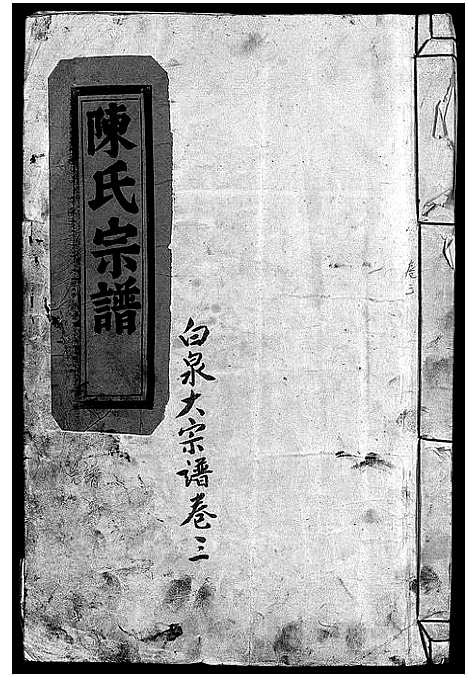 卷三
白泉大宗谱卷三
陳氏宗譜